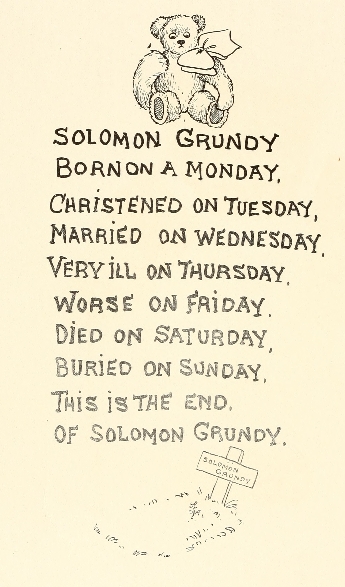 SOLOMON GRUNDY
BORN ON A MONDAY,
CHRISTENED ON TUESDAY,
MARRIED ON WEDNESDAY,
VERY ILL ON THURSDAY,
WORSE ON FRIDAY,
DIED ON SATURDAY,
BURIED ON SUNDAY,
THIS IS THE END,
OF SOLOMON GRUNDY.
SOLOMON
GRUNDY